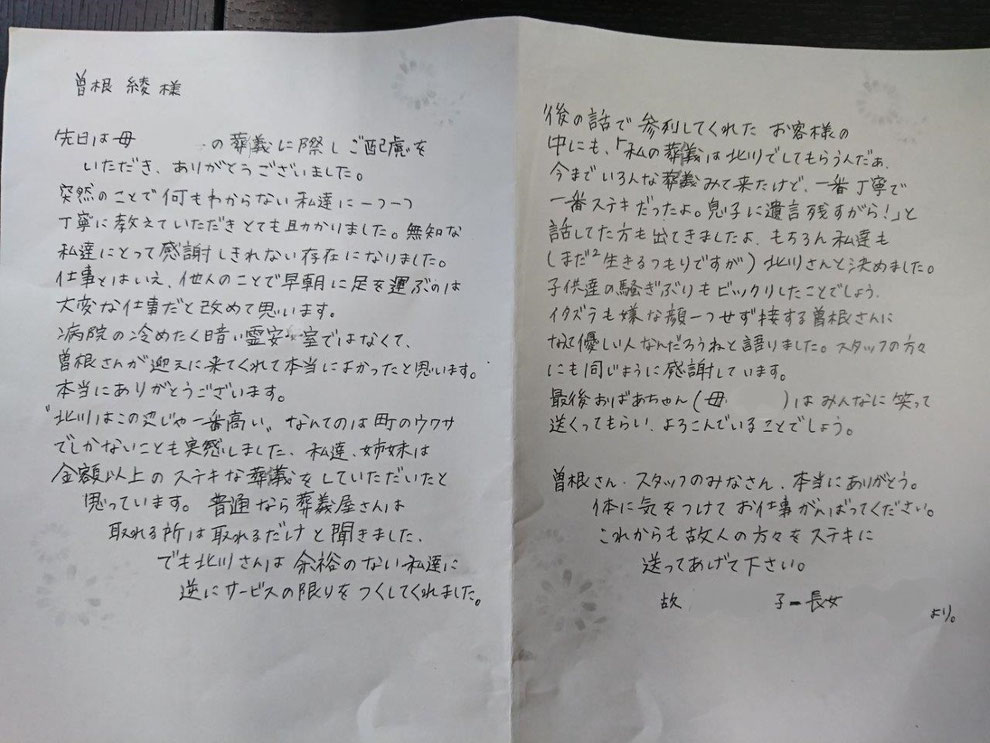 曽根 綾 様
先日は母 の葬義に際しご配慮を
いただき、ありがとうございました。
突然のことで何もわからない私達に一つ一つ
丁寧に教えていただきとても助かりました。無知な
私達にとって感謝しきれない存在になりました。
仕事とはいえ、他人のことで早朝に足を運ぶのは
大変な仕事だと改めて思います。
病院の冷めたく暗い霊安室ではなくて、
曽根さんが迎えに来てくれて本当によかったと思います。
本当にありがとうございます。
"北川はこの辺じゃ一番高い〟なんてのは町のウワサ
でしかないことも実感しました、私達、姉妹は
金額以上のステキな葬義をしていただいたと
思っています。普通なら葬義屋さんは
取れる所は取れるだけと聞きました、
でも北川さんは余裕のない私達に
逆にサービスの限りをつくしてくれました。
後の話で参列してくれたお客様の
中にも、「私の葬義は北川でしてもらうんだぁ、
今までいろんな葬義みて来たけど、一番丁寧で
一番ステキだったよ。息子に遺言残すがら!」と
話してた方も出てきましたよ、もちろん私達も
(まだ²生きるつもりですが)北川さんと決めました。
子供達の騒ぎぶりもビックリしたことでしょう、
イタズラも嫌な顔一つせず接する曽根さんに
なんて優しい人なんだろうねと語りました。スタッフの方々
にも同じように感謝しています。
最後おばあちゃん(母 )はみんなに笑って
送くってもらい、よろこんでいることでしょう。
曽根さん・スタッフのみなさん、本当にありがとう。
体に気をつけてお仕事がんばってください。
これからも故人の方々をステキに
送ってあげて下さい。
故 子ー長女
より。